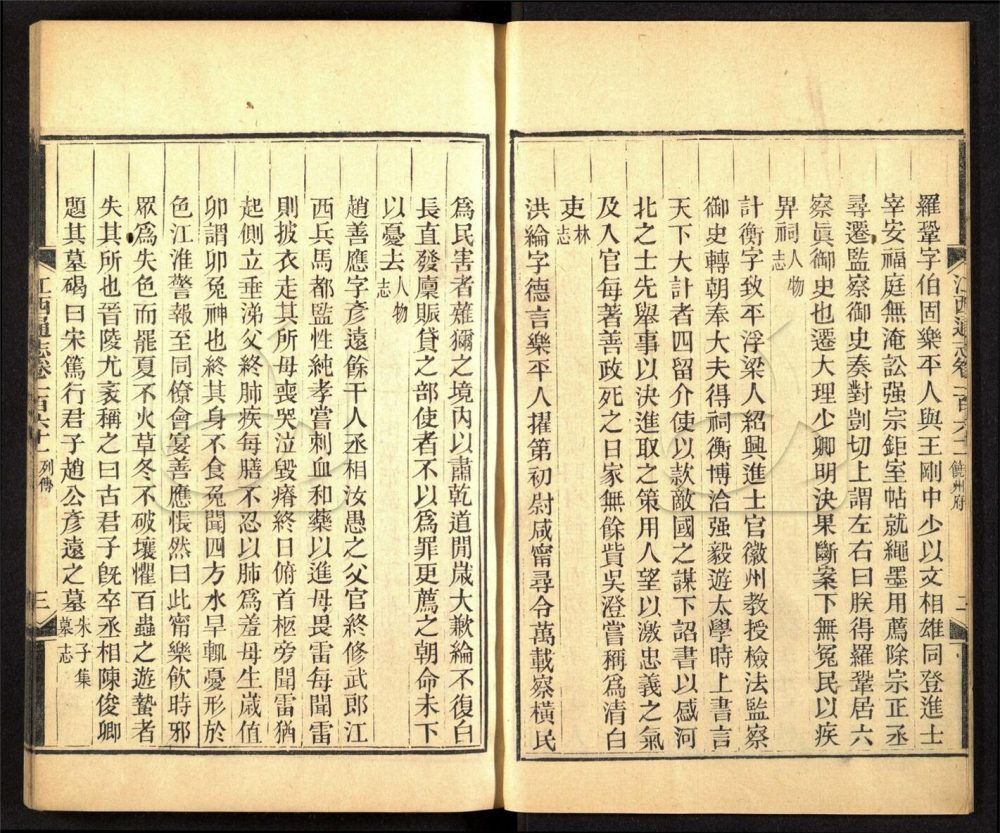 羅鞏字伯固樂平人與王剛中少以文相雄同登進士
宰安福庭無淹訟强宗鉅室帖就繩墨用薦除宗正丞
尋遷監察御史奏對剴切上謂左右曰朕得羅鞏居六
察眞御史也遷大理少卿明決果斷案下無冤民以疾
界祠人物志
計衡字致平浮梁人紹興進士官徽州教授檢法監察
御史轉朝奉大夫得祠衡博洽强毅遊太學時上書言
天下大計者四留介使以款敵國之謀下詔書以感河
北之士先舉事以決進取之策用人望以激忠義之氣
及入官每著善政死之日家無餘貲吳澄嘗稱爲清白
吏林志
洪綸字德言樂平人擢第初尉咸甯尋令萬載察橫民
江西通志卷一百六十一 饒州府 二
爲民害者薙獮之境內以肅乾道閒歲大歉綸不復白
長直發廩賑貸之部使者不以爲罪更薦之朝命未下
以憂去人物志
趙善應字彥遠餘干人丞相汝愚之父官終修武郎江
西兵馬都監性純孝嘗刺血和藥以進母畏雷每聞雷
則披衣走其所母喪哭泣毀瘠終日俯首柩旁聞雷猶
起側立垂涕父終肺疾每膳不忍以肺爲羞母生歲值
卯謂卯兔神也終其身不食兔聞四方水旱輒憂形於
色江淮警報至同僚會宴善應悵然曰此甯樂飲時邪
眾爲失色而罷夏不火草冬不破壤懼百蟲之遊蟄者
失其所也晉陵尤袤稱之曰古君子旣卒丞相陳俊卿
題其墓碣曰宋篤行君子趙公彥遠之墓朱子集墓志
江西通志卷一百六十一 列傳 三